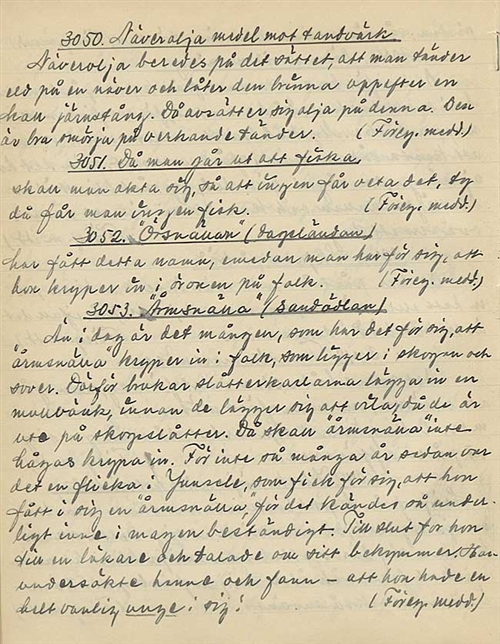 3050. Näverolja medel mot tandvärk.
Näverolja beredes på det sättet, att man tänder
eld på en näver och låter den brinna oppefter en
kall järnstång. Då avsätter sig olja på denna. Den
är bra smörja på verkande tänder. (Föreg. medd.)
3051. Då man går ut att fiska,
skall man akta sig, så att ingen får veta det, ty
då får man ingen fisk. (Föreg. medd.)
3052. "Örsnällan" (dagsländan)
har fått detta namn, emedan man har för sig, att
hon kryper in i öronen på folk. (Föreg. medd.)
3053. "Ormsnälla" (sandödlan)
Än i dag är det mången, som har det för sig, att
"ormsnälla" kryper in i folk, som ligger i skogen och
sover. Därför brukar slåtterkarlarna lägga in en
innan de lägger sig att vila, då de är
ute på skogsslåtter. Då skall "ormsnälla" inte
krypa in. För inte så många år sedan var
det en flicka i Junsele, som fick för sig, att hon
fått i sig en "ormsnälla", för det kändes så under-
ligt inne i magen beständigt. Till slut for hon
till en läkare och talade om sitt bekymmer. Han
undersökte henne och fann – att hon hade en
helt vanlig unge i sig! (Föreg. medd.)